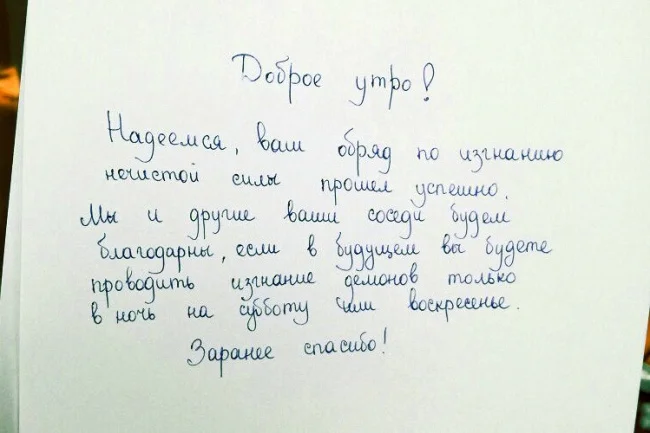 Доброе утро!
Надеемся, ваш обряд по изгнанию
нечистой силы прошел успешно.
Мы и другие ваши соседи будем
благодарны, если в будущем вы будете
проводить изгнание демонов только
в ночь на субботу или воскресенье.
Заранее спасибо!